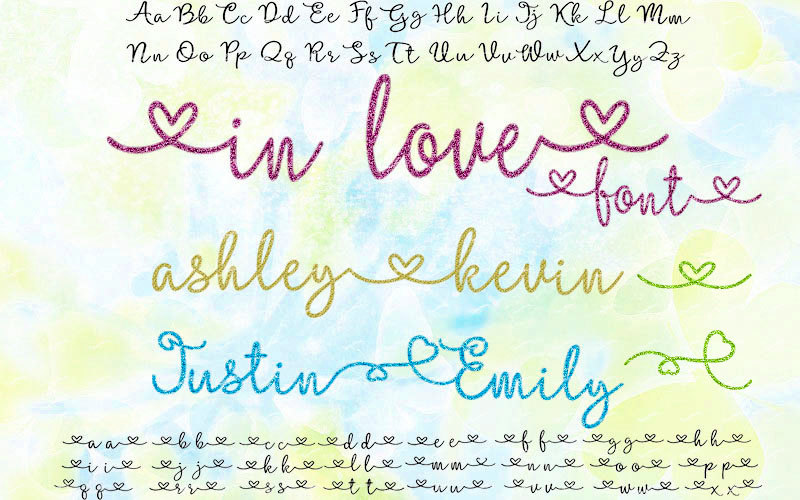 Aa Bb Cc Dd Ee Ff Gg Hh Ii Jj Kk Ll Mm
Nn Oo Pp Qq Rr Ss Tt Uu Vv Ww Xx Yy Zz
in love
font
ashley kevin
Justin Emily
a a b b c c d d e e f f g g h h
i i j j k k l l m m n n o o p p
q q r r s s t t u u v v w w x x